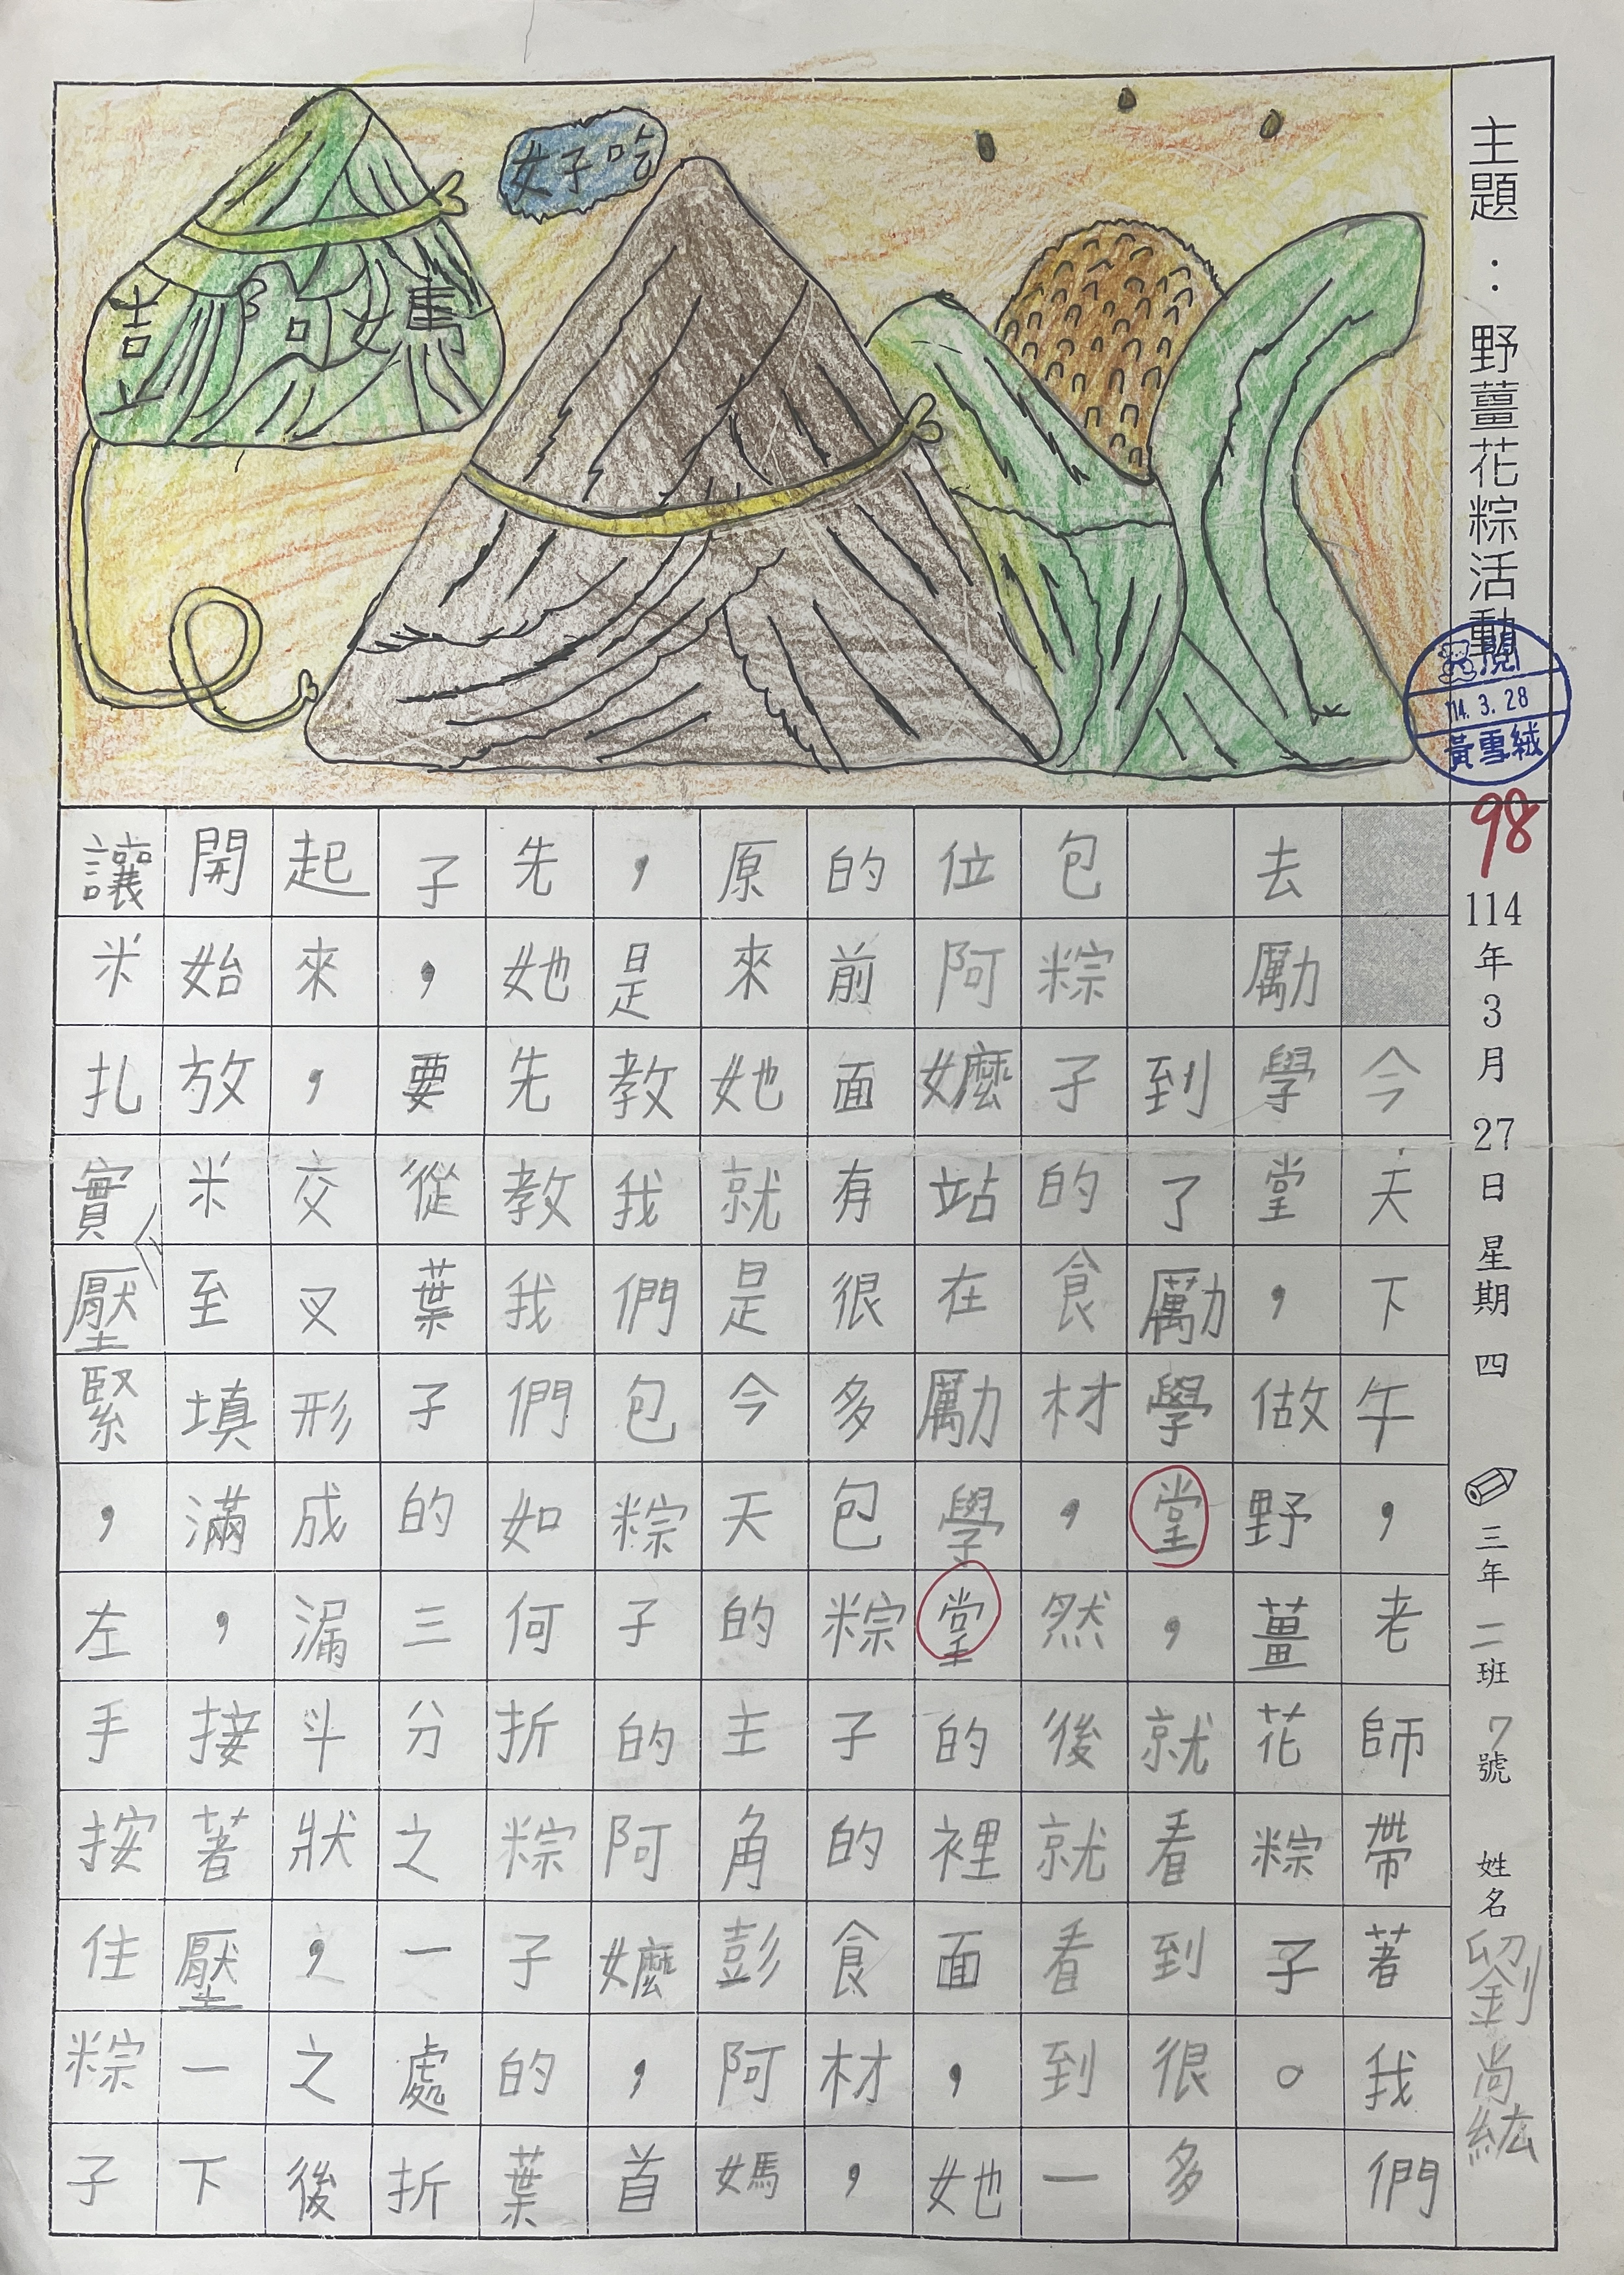 主題：野薑花粽活動
閱
114.3.28
黃雪絨
98
114年3月27日星期四 三年二班7號 姓名劉尚紘
好吃
彭阿媽
今天下午，老師帶著我們
去勵學堂，做野薑花粽子。
到了勵學堂，就看到很多
包粽子的食材，然後就看到一
位阿嬤站在勵學堂的裡面，她
的前面有很多包粽子的食材，
原來她就是今天的主角彭阿媽
，是教我們包粽子的阿嬤，首
先她先教我們如何折粽子的葉
子，要從葉子的三分之一處折
起來，交叉形成漏斗狀，之後
開始放米至填滿，接著壓一下
讓米扎實壓緊，左手按住粽子